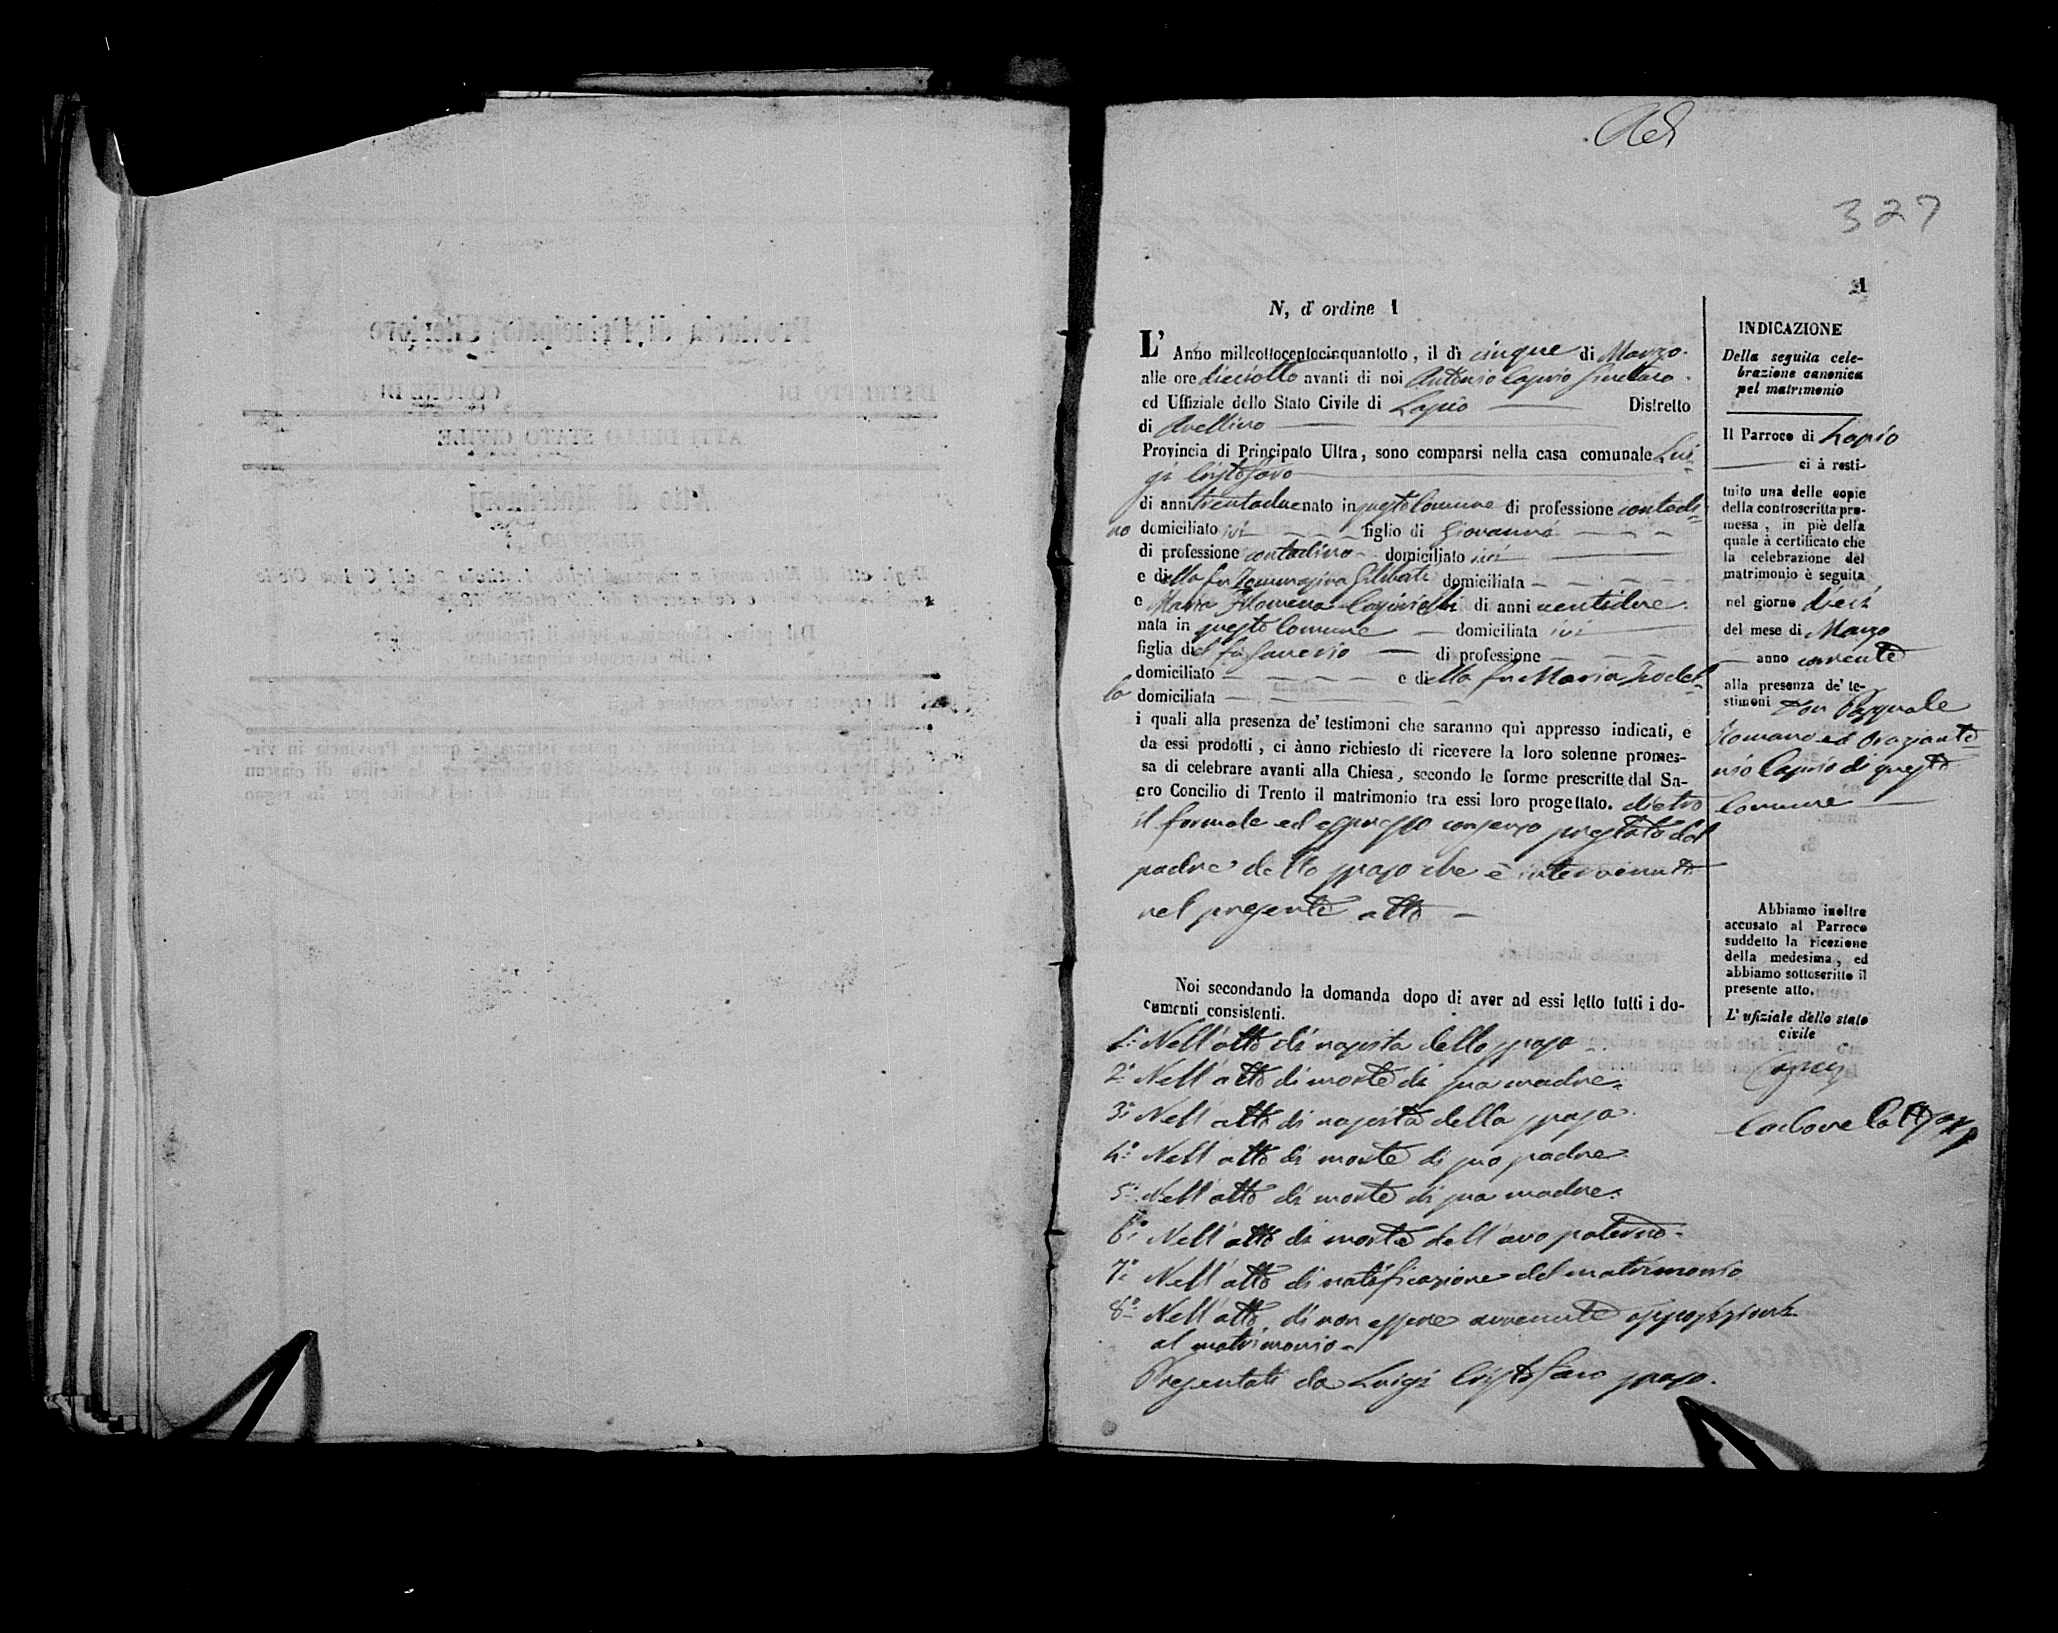 327
1
N, d' ordine 1
L' Anno millottocentocinquantotto, il dì cinque di Marzo
alle ore dieciotto avanti di noi Antonio Caprio Sindaco
ed Uffiziale dello Stato Civile di Lapio Distretto
di Avellino
Provincia di Principato Ultra, sono comparsi nella casa comunale Lui-
gi Cristofaro
di anni trentadue nato in questo Comune di professione contadi-
no domiciliato ivi figlio di Giovanni
di professione contadino domiciliato ivi
e della fu Geliberti domiciliata
e Maria Filomena di anni ventidue
nata in questo Comune domiciliata ivi
figlia del fu Saverio di professione
domiciliato e della fu Maria
domiciliata
i quali alla presenza de' testimoni che saranno quì appresso indicati, e
da essi prodotti, ci ànno richiesto di ricevere la loro solenne promes-
sa di celebrare avanti alla Chiesa, secondo le forme prescritte dal Sa-
cro Concilio di Trento il matrimonio tra essi loro progettato. dietro
il formale ed espresso consenzo prestato dal
padre dello sposo che è intervenuto
nel presente atto
Noi secondando la domanda dopo di aver ad essi letto tutti i do-
cumenti consistenti.
1° Nell'atto di nascita dello sposo
2° Nell'atto di morte di sua madre
3° Nell'atto di nascita della sposa
4° Nell'atto di morte di suo padre
5° Nell'atto di morte di sua madre
6° Nell'atto di morte dell'avo paterno
7° Nell'atto di notificazione del matrimonio
8° Nell'atto di non essere avvenute opposizioni
al matrimonio
Presentati da Luigi Cristofaro sposo.
INDICAZIONE
Della seguita cele-
brazione canonica
pel matrimonio
Il Parroco di Lapio
ci à resti-
tuito una delle copie
della controscritta pro-
messa, in piè della
quale à certificato che
la celebrazione del
matrimonio è seguita
nel giorno dieci
del mese di Marzo
anno corrente
alla presenza de' te-
stimoni Don Pasquale
Romano ed Oraziante-
nio Caprio di questo
Comune
Abbiamo inoltre
accusato al Parroco
suddetto la ricezione
della medesima, ed
abbiamo sottoscritto il
presente atto.
L' ufiziale dello stato
civile